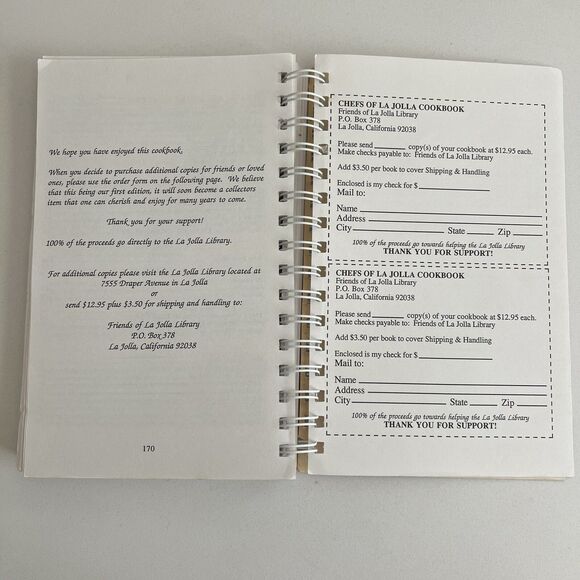 We hope you have enjoyed this cookbook,
When you decide to purchase additional copies for friends or loved
ones, please use the order form on the following page. We believe
that this being our first edition, it will soon become a collectors
item that one can cherish and enjoy for many years to come.
Thank you for your support!
100% of the proceeds go directly to the La Jolla Library.
For additional copies please visit the La Jolla Library located at
7555 Draper Avenue in La Jolla
or
send $12.95 plus $3.50 for shipping and handling to:
Friends of La Jolla Library
P.O. Box 378
La Jolla, California 92038
170
CHEFS OF LA JOLLA COOKBOOK
Friends of La Jolla Library
P.O. Box 378
La Jolla, California 92038
Please send ________ copy(s) of your cookbook at $12.95 each.
Make checks payable to: Friends of La Jolla Library
Add $3.50 per book to cover Shipping & Handling
Enclosed is my check for $ ________
Mail to:
Name ________
Address ________
City ________ State ____ Zip ____
100% of the proceeds go towards helping the La Jolla Library
THANK YOU FOR SUPPORT!
CHEFS OF LA JOLLA COOKBOOK
Friends of La Jolla Library
P.O. Box 378
La Jolla, California 92038
Please send ________ copy(s) of your cookbook at $12.95 each.
Make checks payable to: Friends of La Jolla Library
Add $3.50 per book to cover Shipping & Handling
Enclosed is my check for $ ________
Mail to:
Name ________
Address ________
City ________ State ____ Zip ____
100% of the proceeds go towards helping the La Jolla Library
THANK YOU FOR SUPPORT!